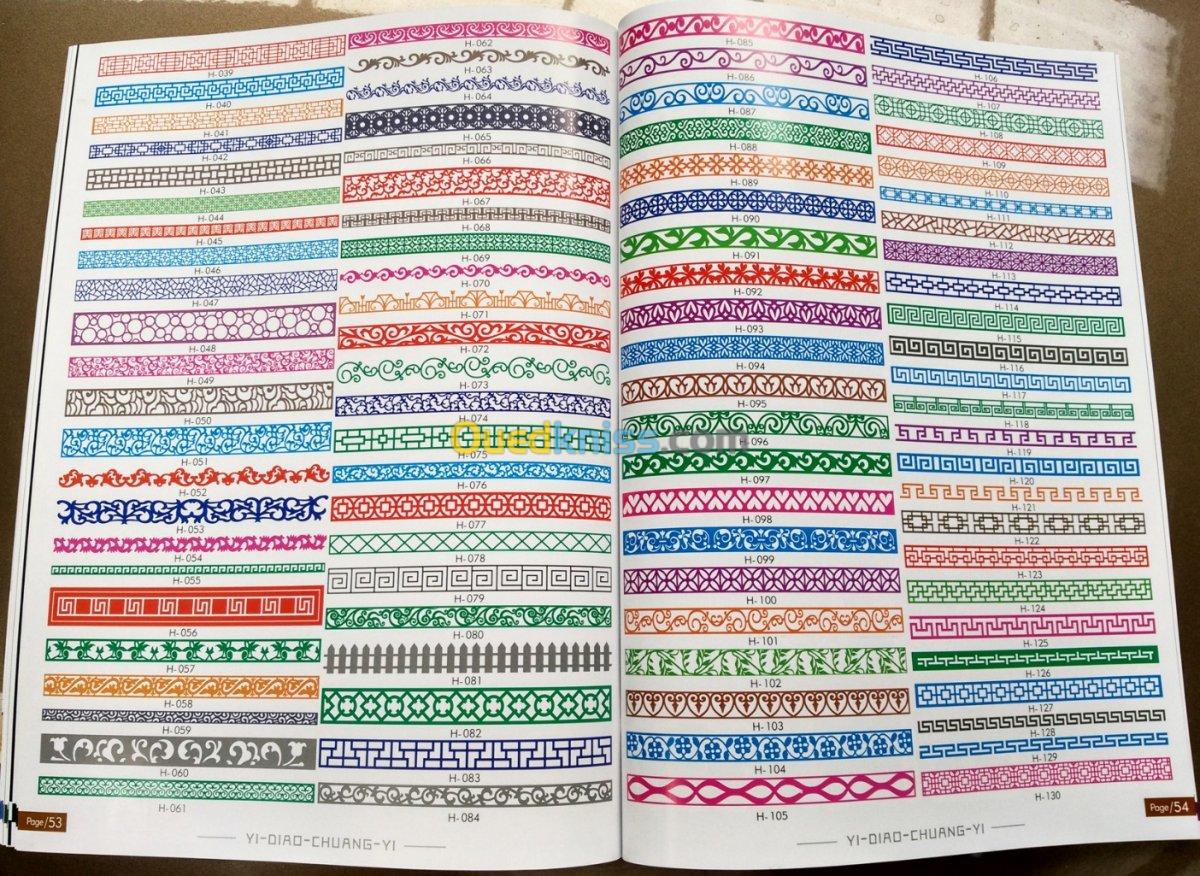 H-039
H-040
H-041
H-042
H-043
H-044
H-045
H-046
H-047
H-048
H-049
H-050
H-051
H-052
H-053
H-054
H-055
H-056
H-057
H-058
H-059
H-060
H-061
H-062
H-063
H-064
H-065
H-066
H-067
H-068
H-069
H-070
H-071
H-072
H-073
H-074
H-075
H-076
H-077
H-078
H-079
H-080
H-081
H-082
H-083
H-084
Page/53
YI-DIAO-CHUANG-YI
H-085
H-086
H-087
H-088
H-089
H-090
H-091
H-092
H-093
H-094
H-095
H-096
H-097
H-098
H-099
H-100
H-101
H-102
H-103
H-104
H-105
H-106
H-107
H-108
H-109
H-110
H-111
H-112
H-113
H-114
H-115
H-116
H-117
H-118
H-119
H-120
H-121
H-122
H-123
H-124
H-125
H-126
H-127
H-128
H-129
H-130
Page/54
YI-DIAO-CHUANG-YI
Ouedkniss.com